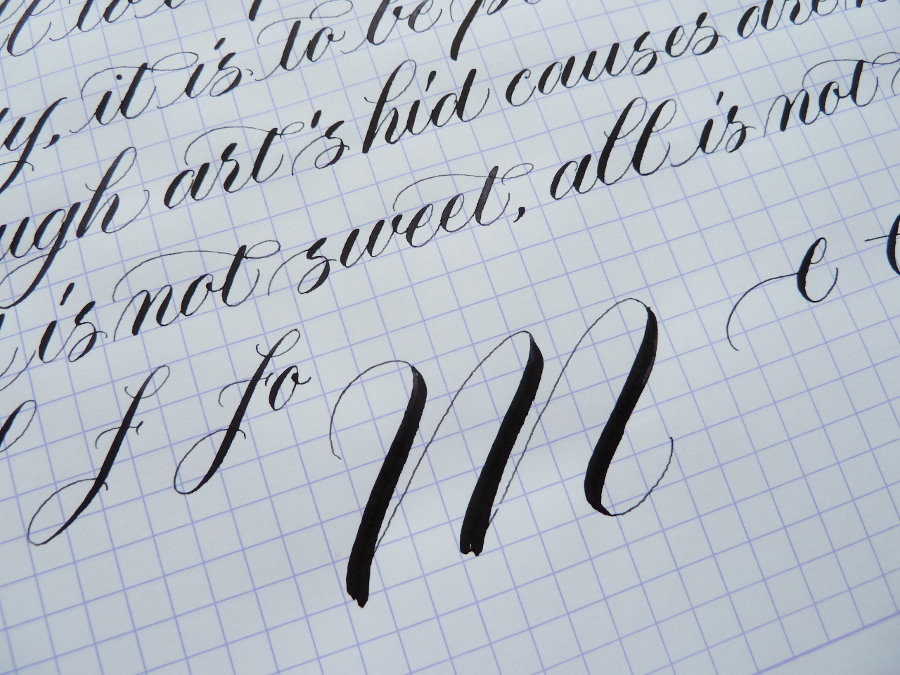 it is to be
ugh art's hid causes are
is not sweet, all is not
f fo m e t